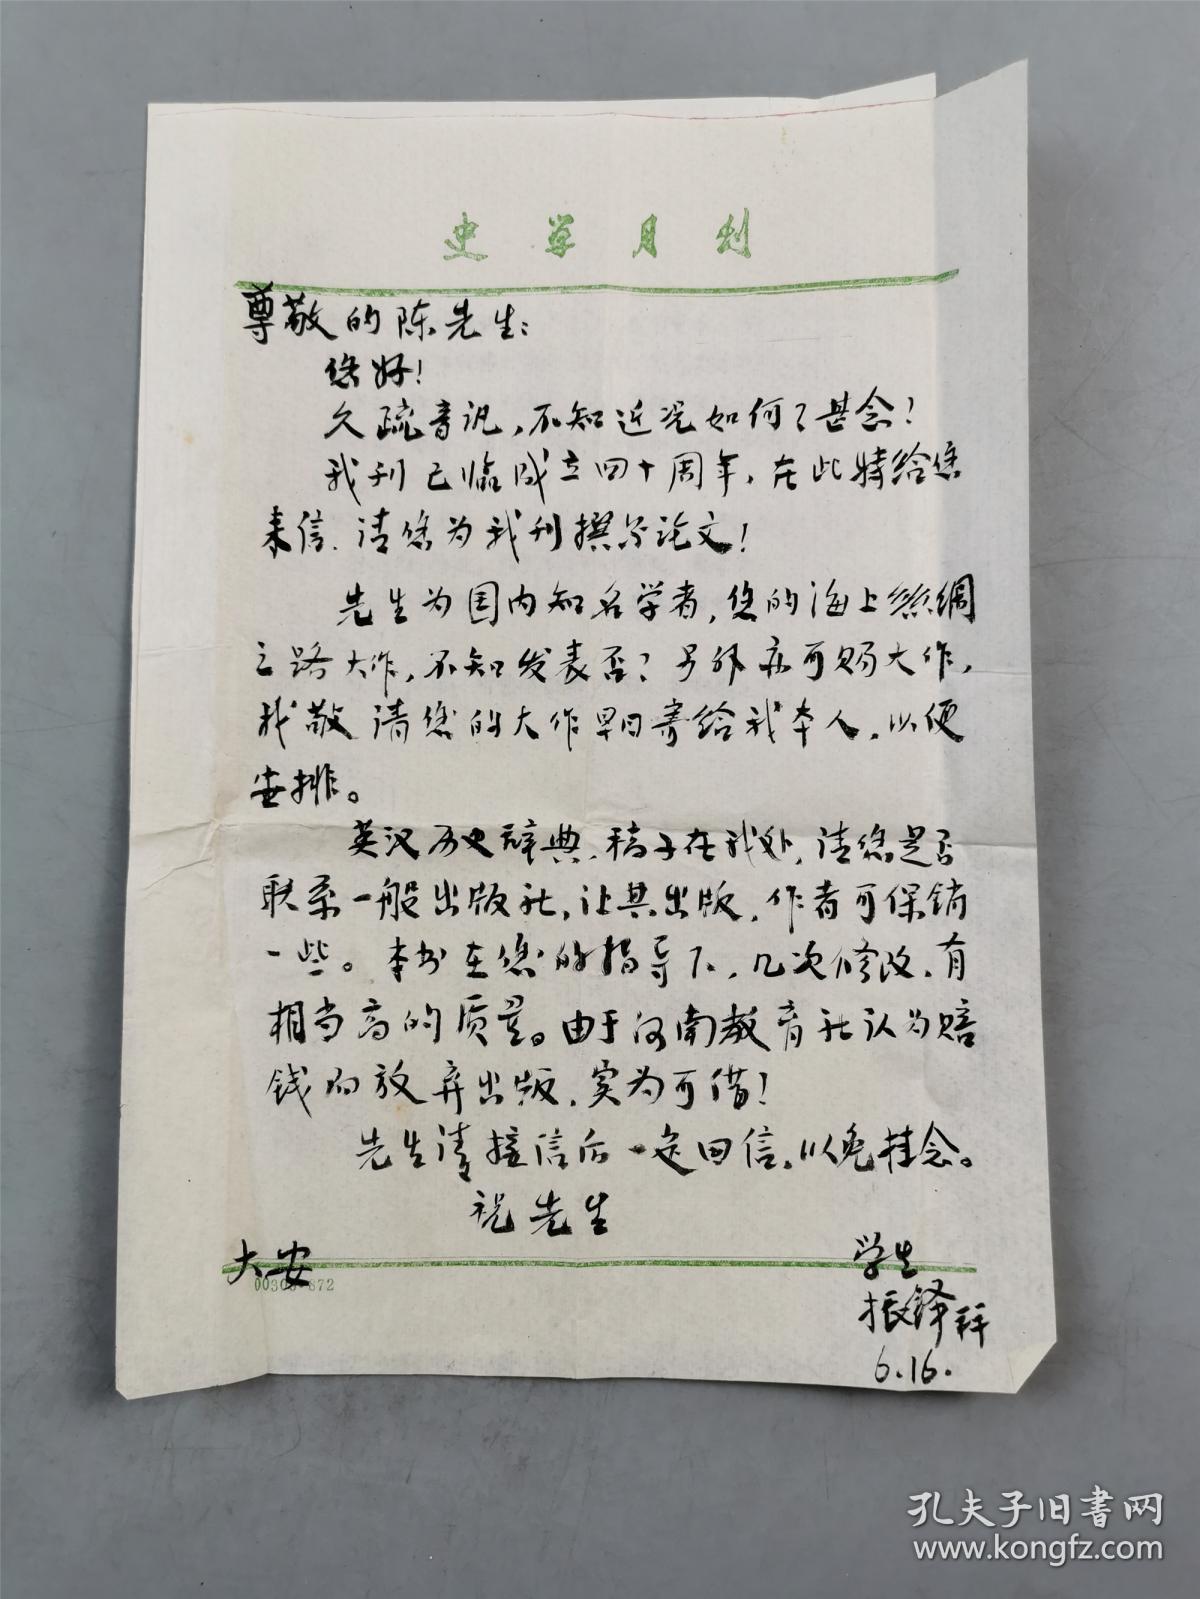 史学月刊
尊敬的陈先生:
您好!
久疏音讯,不知近况如何?甚念!
我刊已临成立四十周年,在此特给您
来信,请您为我刊撰写论文!
先生为国内知名学者,您的海上丝绸
之路大作,不知发表否?另外亦可赐大作,
我敬请您的大作早日寄给我本人,以便
安排。
英汉历史辞典,稿子在我处,请您是否
联系一般出版社,让其出版,作者可保销
一些。本书在您的指导下,几次修改,有
相当高的质量。由于河南教育社认为赔
钱而放弃出版,实为可惜!
先生请接信后一定回信,以免挂念。
祝先生
大安
学生
振铎拜
6.16.
孔夫子旧书网
www.kongfz.com